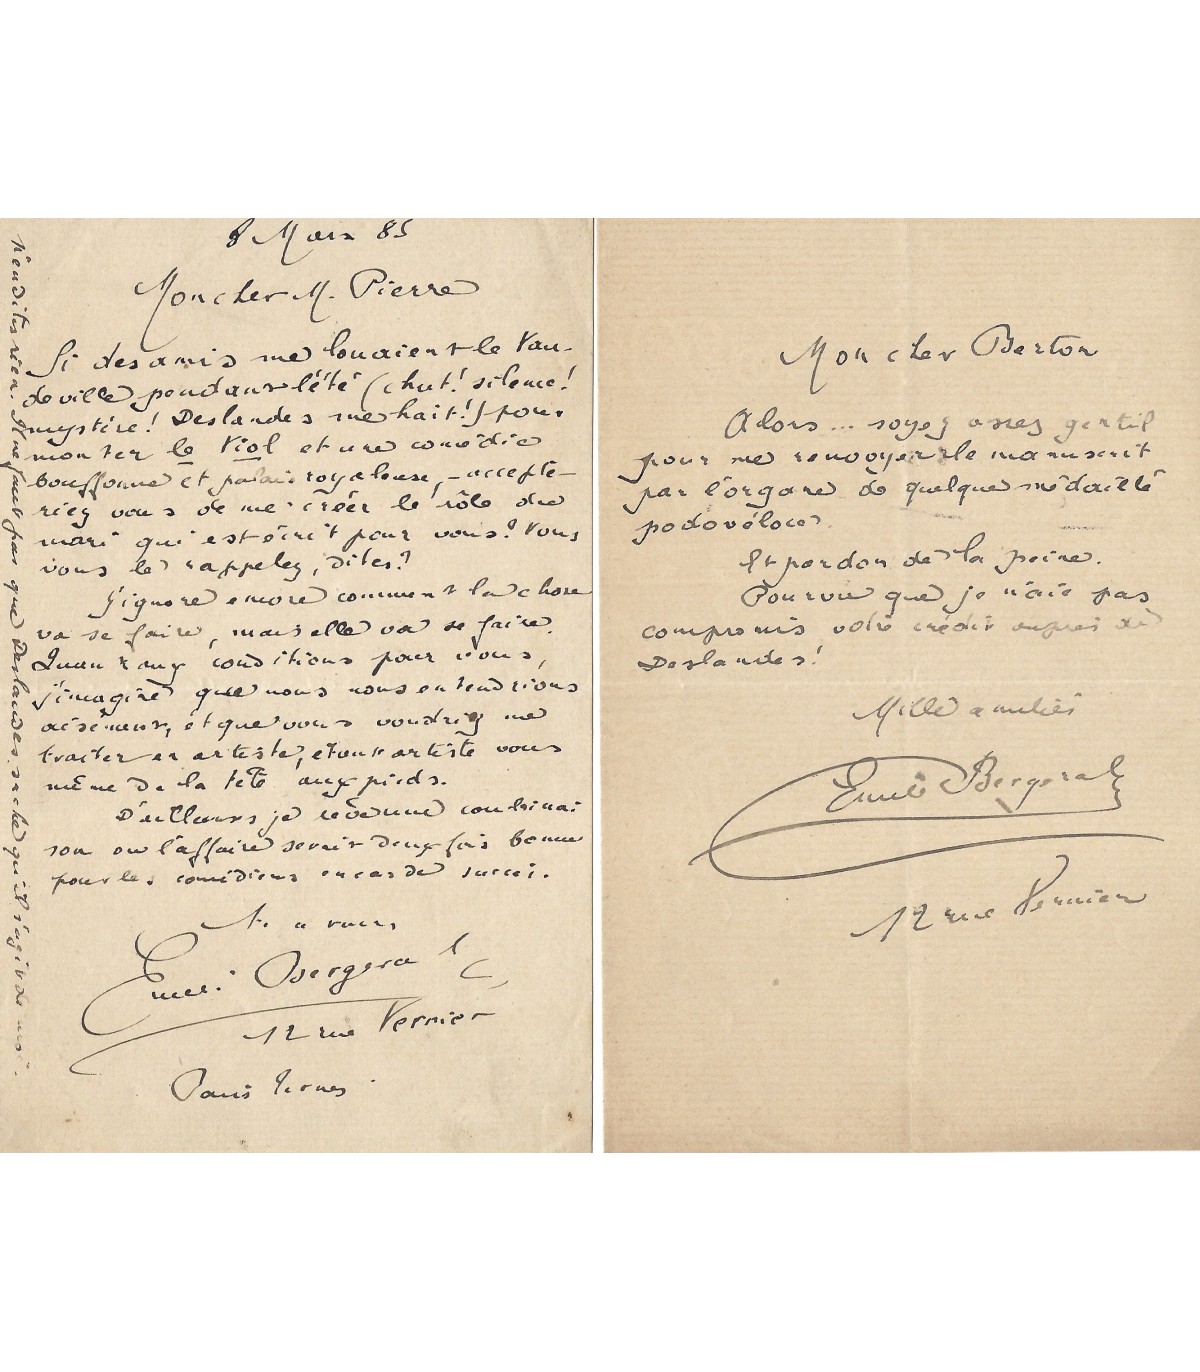 8 Mars 85
Mon cher M. Pierre
Si des amis me louaient le Vau-
deville pendant l'été (chut! silence!
mystère! Deslandes me hait!) pour
monter le Viol et une comédie
bouffonne et palais royaleuse, - accepte-
riez vous de me créer le rôle du
mari qui est écrit pour vous? Vous
vous le rappelez, dites?
J'ignore encore comment la chose
va se faire, mais elle va se faire.
Quant aux conditions pour vous,
j'imagine que nous nous entendrions
aisément, et que vous voudriez me
traiter en artiste, étant artiste vous
même de la tête aux pieds.
D'ailleurs je combinai
son où l'affaire serait deux fois bonne
pour les comédiens en cas de succès.
A vous
Emile Bergerat
12 rue Vernier
Paris Ternes.
N'en dites rien. Il ne faut pas que Deslandes sache qu'il s'agit de moi.
Mon cher Berton
Alors... soyez assez gentil
pour me renvoyer le manuscrit
par l'organe de quelque médaillé
podovéloce.
Et pardon de la peine.
Pourvu que je n'aie pas
compromis votre crédit auprès de
Deslandes!
Mille amitiés
Emile Bergerat
12 rue Vernier